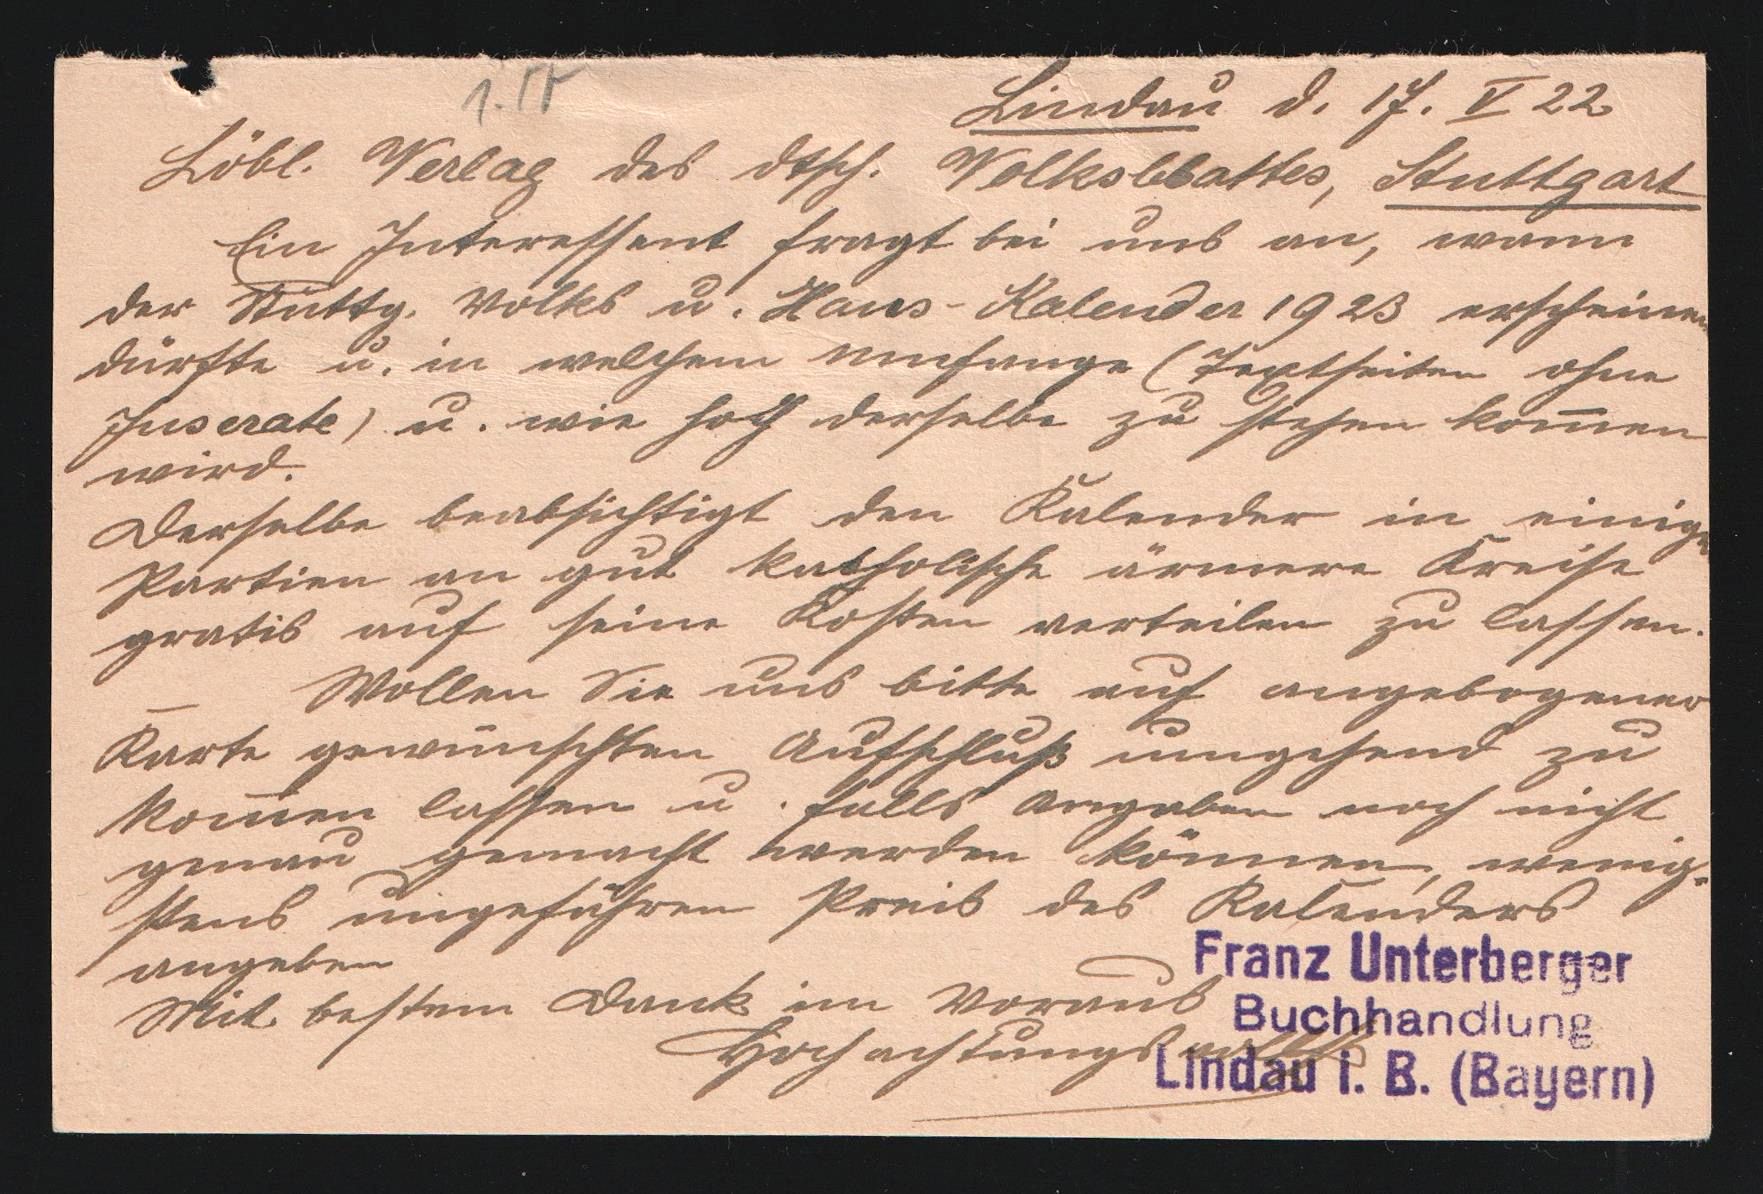 Lindau d. 17. V 22
Löbl. Verlag des dtsch. Volksblattes, Stuttgart
Ein Interessent fragt bei uns an, wann
der Stuttg. Volks u. Haus-Kalender 1923 erscheinen
dürfte u. in welchem Umfange (Textseiten ohne
Inserate) u. wie hoch derselbe zu stehen kom̅en
wird.
Derselbe beabsichtigt den Kalender in einigen
Partien an gut katholische ärmere Kreise
gratis auf seine Kosten verteilen zu lassen.
– Wollen Sie uns bitte auf angebogener
Karte gewünschten Aufschluß umgehend zu
kom̅en lassen u. falls Angaben noch nicht
genau gemacht werden können, wenig-
stens ungefähren Preis des Kalenders
angeben
Mit bestem Dank im Voraus
Hochachtungsvollst
Franz Unterberger
Buchhandlung
Lindau i. B. (Bayern)